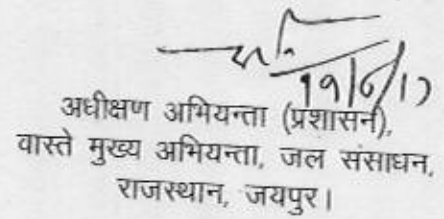 19/6/17
अधीक्षण अभियन्ता (प्रशासन),
वास्ते मुख्य अभियन्ता, जल संसाधन,
राजस्थान, जयपुर।